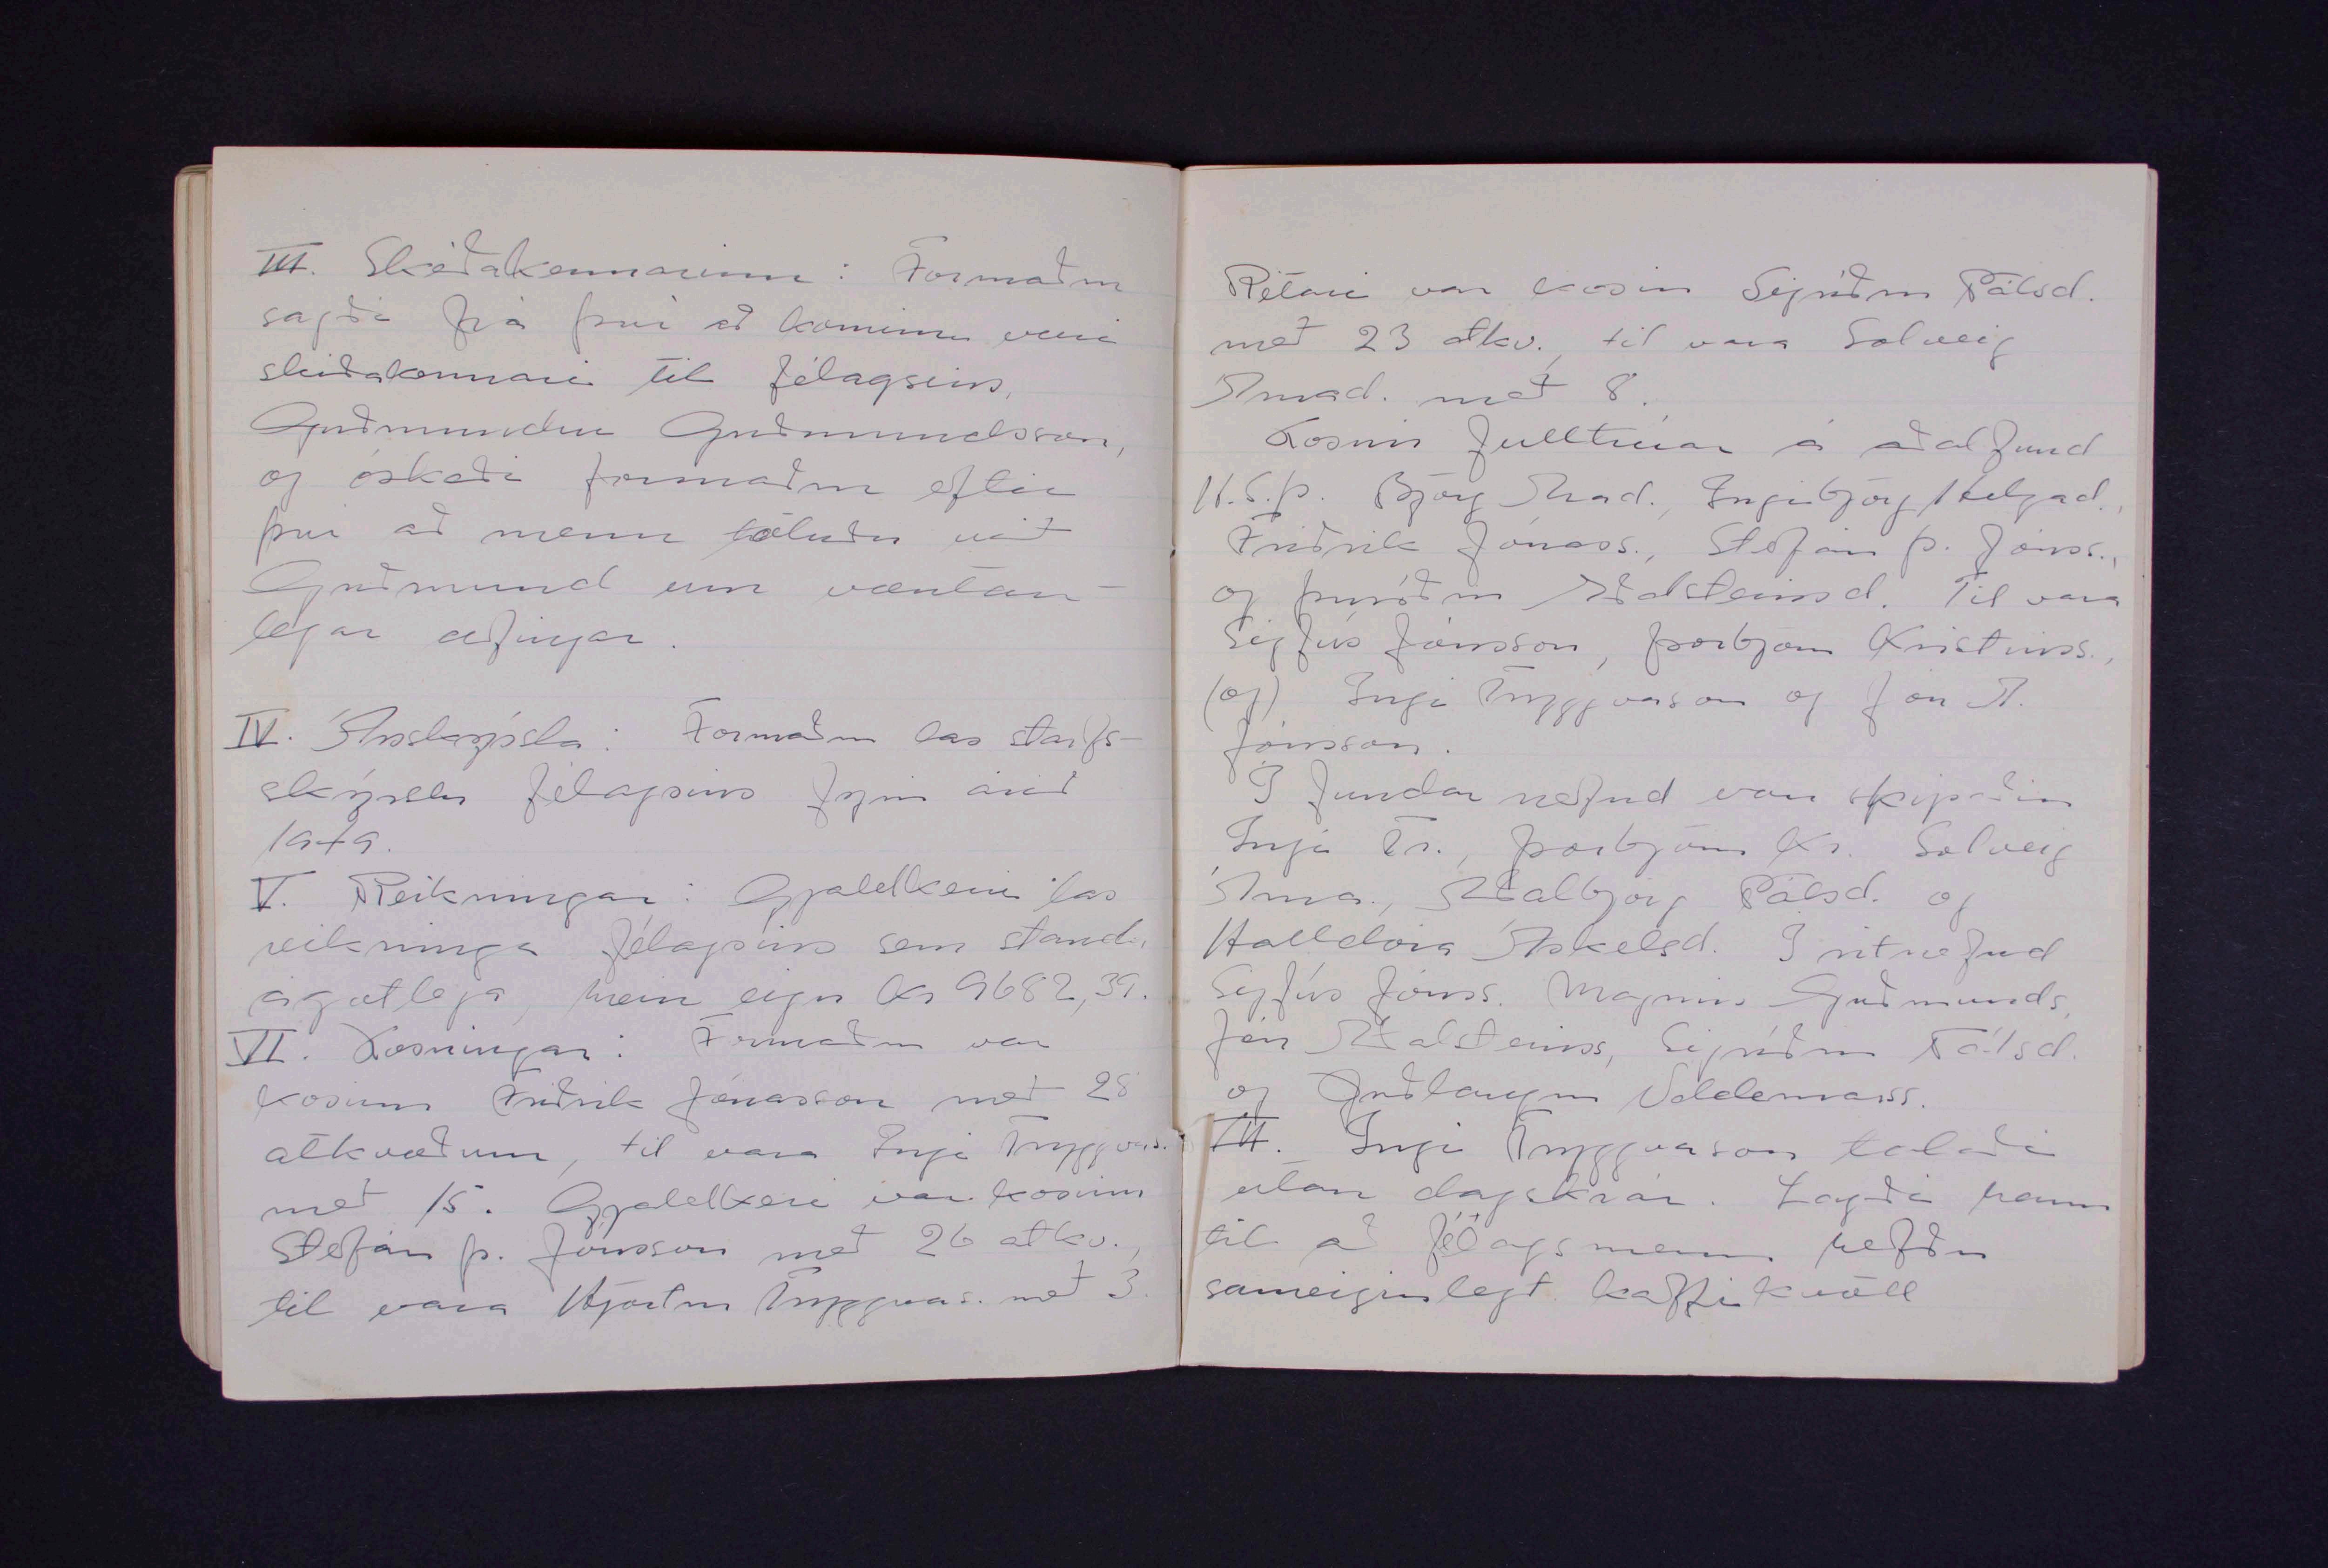 III. Skíðakennarinn: Formaður
sagði frá því að kominn væri
skíðakennari til félagsins,
Guðmundur Guðmundsson,
og óskaði formaður eftir
því að menn töluðu við
Guðmund um væntan-
legar æfingar.
IV. Ársskýrsla: Formaður las starfs-
skýrslu félagsins fyrir árið
1949.
V. Reikningar: Gjaldkeri las
reikninga félagsins sem standa
ágætlega, hrein eign kr 9682,39.
VI. Kosningar: Formaður var
kosinn Friðrik Jónasson með 28
atkvæðum, til vara Ingi Tryggvas.
með 15. Gjaldkeri var kosinn
Stefán Þ. Jónsson með 26 atkv.,
til vara Hjörtur Tryggvas. með 3.
Ritari var kosin Sigríður Pálsd.
með 23 atkv., til vara Solveig
Árnad. með 8.
Kosnir fulltrúar á aðalfund
H.S.Þ. Björg Arad., Ingibjörg Helgad.,
Friðrik Jónass., Stefán Þ. Jónss.,
og Þuríður Aðalsteinsd. Til vara
Sigfús Jónsson, Þorbjörn Kristinss.,
(og) Ingi Tryggvason og Jón A.
Jónsson.
Í fundarnefnd voru skipaðir
Ingi Tr., Þorbjörn Kr. Solveig
Árna., Aðalbjörg Pálsd. og
Halldóra Áskelsd. Í ritnefnd
Sigfús Jónss. Magnús Guðmunds,
Jón Aðalsteinss, Sigríður Pálsd.
og Guðlaugur Valdemarss.
VII. Ingi Tryggvason talaði
utan dagskrár. Lagði hann
til að félagsmenn hefðu
sameiginlegt kaffikvöll